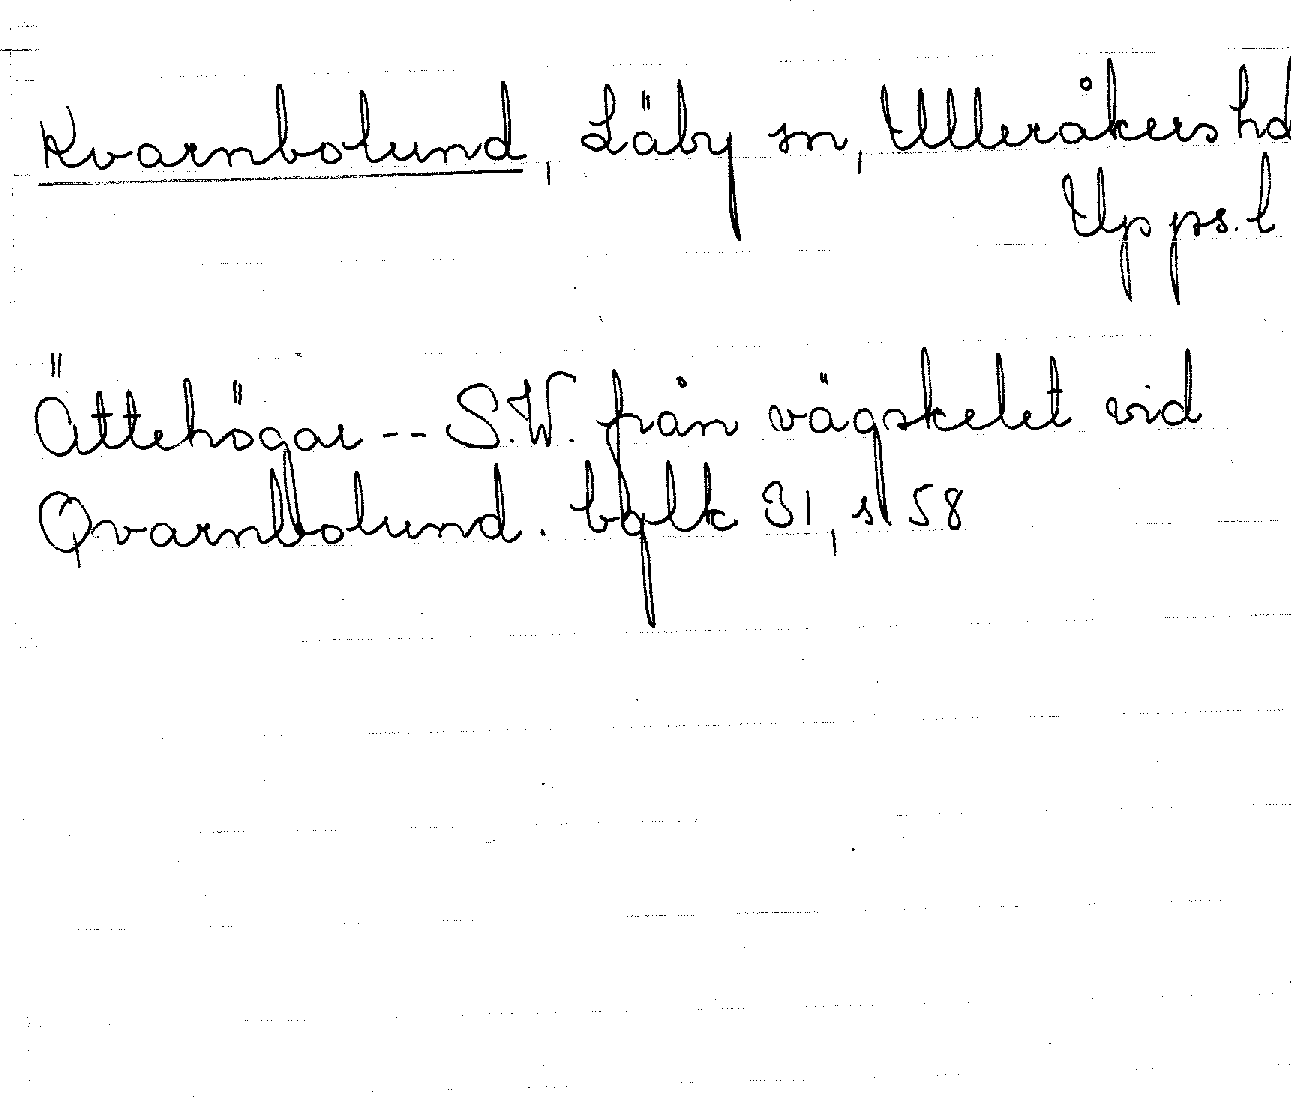 Kvarnbolund, Läby sn, Ulleråkers hd
Upps. l
Ättehögar -- S.W. från vägskelet vid
Qvarnbolund. bglk 31, s 58